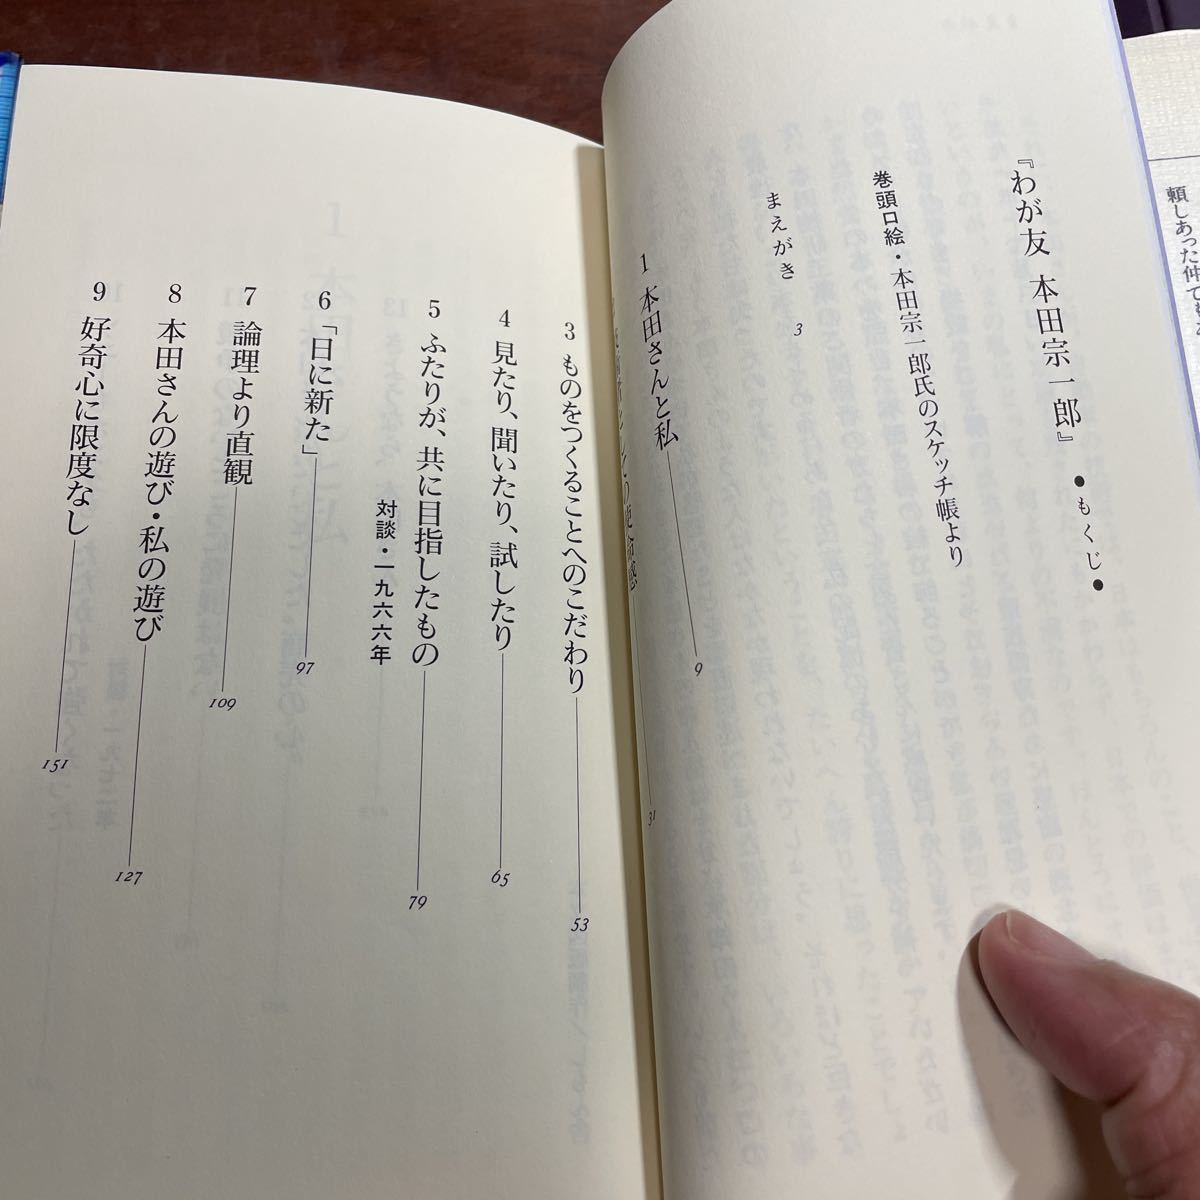 『わが友 本田宗一郎』 ●もくじ●
巻頭口絵・本田宗一郎氏のスケッチ帳より
まえがき 3
1 本田さんと私 9
31
3 ものをつくることへのこだわり 53
4 見たり、聞いたり、試したり 65
5 ふたりが、共に目指したもの 79
対談・一九六六年
6 「日に新た」 97
7 論理より直観 109
8 本田さんの遊び・私の遊び 127
9 好奇心に限度なし 151
頼しあった仲で